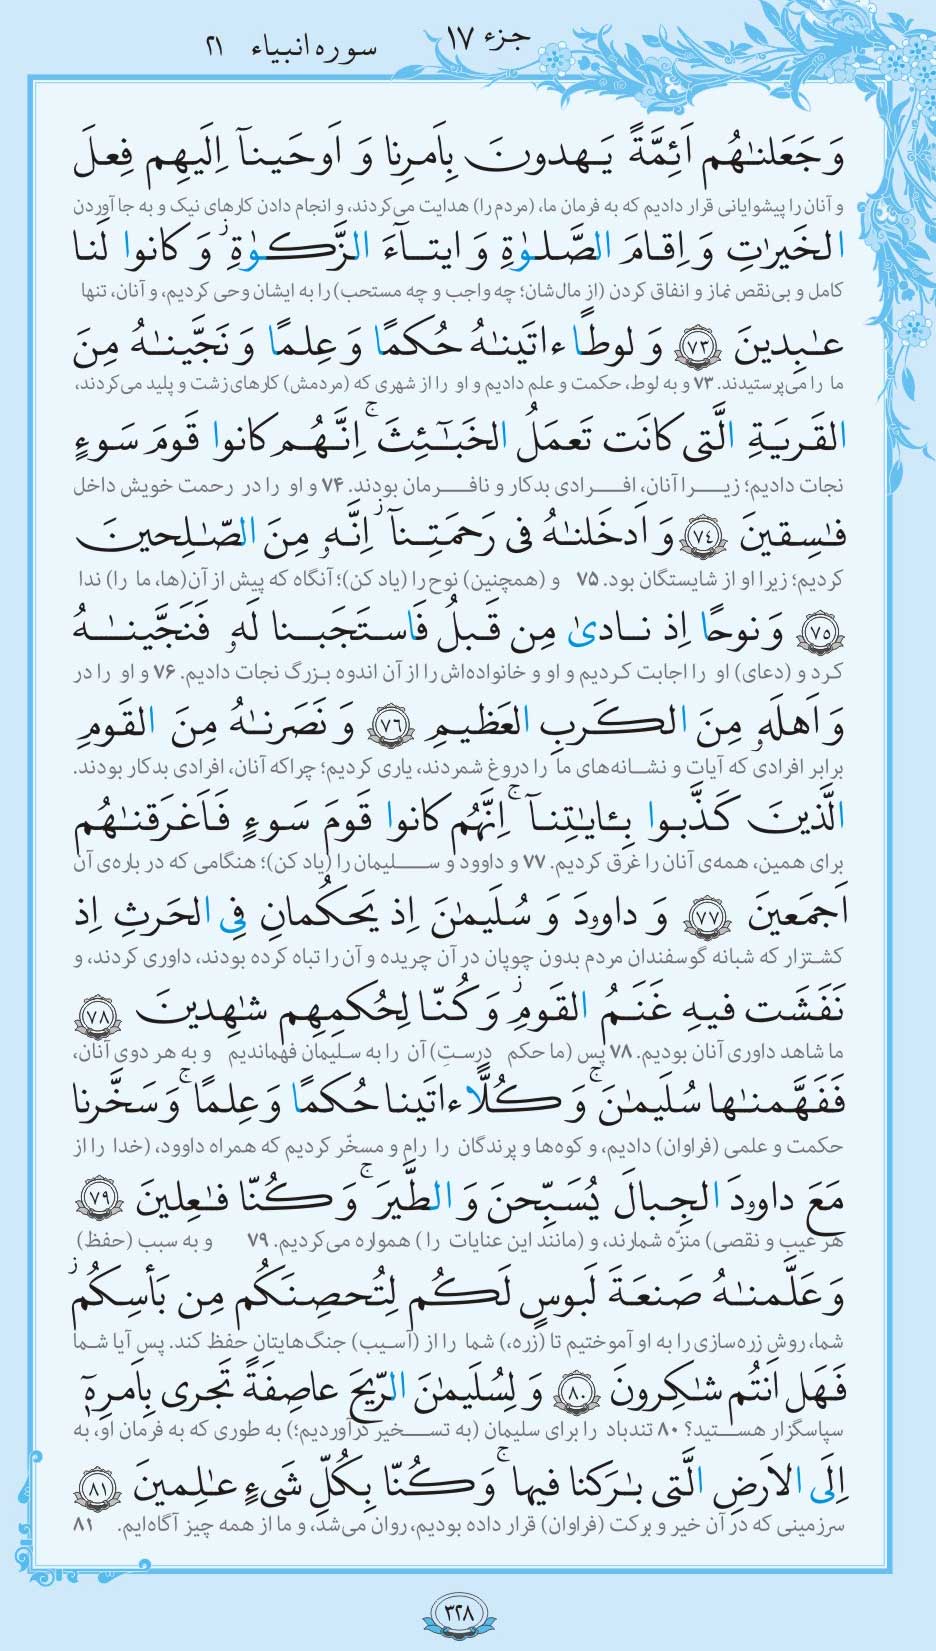 جزء ۱۷
سوره انبیاء ۲۱
وَ جَعَلنٰهُم اَئِمَّةً یَهدونَ بِاَمرِنا وَ اَوحَینآ اِلَیهِم فِعلَ
و آنان را پیشوایانی قرار دادیم که به فرمان ما، (مردم را) هدایت می‌کردند، و انجام دادن کارهای نیک و به جا آوردن
الخَیرٰتِ وَ اِقامَ الصَّلوٰةِ وَ ایتآءَ الزَّکوٰةِۖ وَ کانوا لَنا
کامل و بی‌نقص نماز و انفاق کردن (از مال‌شان؛ چه واجب و چه مستحب) را به ایشان وحی کردیم، و آنان، تنها
عٰبِدینَ ﴿۷۳﴾ وَ لوطًا ءاتَینٰهُ حُکمًا وَ عِلمًا وَ نَجَّینٰهُ مِنَ
ما را می‌پرستیدند. ۷۳ و به لوط، حکمت و علم دادیم و او را از شهری که (مردمش) کارهای زشت و پلید می‌کردند،
القَریَةِ الَّتی کانَت تَعمَلُ الخَبٰٓئِثَۚ اِنَّهُم کانوا قَومَ سَوءٍ
نجات دادیم؛ زیرا آنان، افرادی بدکار و نافرمان بودند. ۷۴ و او را در رحمت خویش داخل
فٰسِقینَ ﴿۷۴﴾ وَ اَدخَلنٰهُ فی رَحمَتِنآۖ اِنَّهٗ مِنَ الصّٰلِحینَ
کردیم؛ زیرا او از شایستگان بود. ۷۵ و (همچنین) نوح را (یاد کن)؛ آنگاه که پیش از آن(ها، ما را) ندا
﴿۷۵﴾ وَ نوحًا اِذ نادیٰ مِن قَبلُ فَاستَجَبنا لَهٗ فَنَجَّینٰهُ
کرد و (دعای) او را اجابت کردیم و او و خانواده‌اش را از آن اندوه بزرگ نجات دادیم. ۷۶ و او را در
وَ اَهلَهٗ مِنَ الکَربِ العَظیمِ ﴿۷۶﴾ وَ نَصَرنٰهُ مِنَ القَومِ
برابر افرادی که آیات و نشانه‌های ما را دروغ شمردند، یاری کردیم؛ چراکه آنان، افرادی بدکار بودند.
الَّذینَ کَذَّبوا بِـٔایٰتِنآۚ اِنَّهُم کانوا قَومَ سَوءٍ فَاَغرَقنٰهُم
برای همین، همه‌ی آنان را غرق کردیم. ۷۷ و داوود و سلیمان را (یاد کن)؛ هنگامی که درباره‌ی آن
اَجمَعینَ ﴿۷۷﴾ وَ داوۥدَ وَ سُلَیمٰنَ اِذ یَحکُمانِ فِی الحَرثِ اِذ
کشتزار که شبانه گوسفندان مردم بدون چوپان در آن چریده و آن را تباه کرده بودند، داوری کردند، و
نَفَشَت فیهِ غَنَمُ القَومِۖ وَ کُنّا لِحُکمِهِم شٰهِدینَ ﴿۷۸﴾
ما شاهد داوری آنان بودیم. ۷۸ پس (ما حکم درستِ) آن را به سلیمان فهماندیم و به هر دوی آنان،
فَفَهَّمنٰها سُلَیمٰنَۚ وَ کُلًّا ءاتَینا حُکمًا وَ عِلمًاۚ وَ سَخَّرنا
حکمت و علمی (فراوان) دادیم، و کوه‌ها و پرندگان را رام و مسخّر کردیم که همراه داوود، (خدا را از
مَعَ داوۥدَ الجِبالَ یُسَبِّحنَ وَ الطَّیرَۚ وَ کُنّا فٰعِلینَ ﴿۷۹﴾
هر عیب و نقصی) منزّه شمارند، و (مانند این عنایات را) همواره می‌کردیم. ۷۹ و به سبب (حفظ)
وَ عَلَّمنٰهُ صَنعَةَ لَبوسٍ لَکُم لِتُحصِنَکُم مِن بَأسِکُمۖ
شما، روش زره‌سازی را به او آموختیم تا (زره،) شما را از (آسیب) جنگ‌هایتان حفظ کند. پس آیا شما
فَهَل اَنتُم شٰکِرونَ ﴿۸۰﴾ وَ لِسُلَیمٰنَ الرّیحَ عاصِفَةً تَجری بِاَمرِهٖٓ
سپاسگزار هستید؟ ۸۰ تندباد را برای سلیمان (به تسخیر درآوردیم؛) به طوری که به فرمان او، به
اِلَی الاَرضِ الَّتی بٰرَکنا فیهاۚ وَ کُنّا بِکُلِّ شَیءٍ عٰلِمینَ ﴿۸۱﴾
سرزمینی که در آن خیر و برکت (فراوان) قرار داده بودیم، روان می‌شد، و ما از همه چیز آگاه‌ایم. ۸۱
۳۲۸